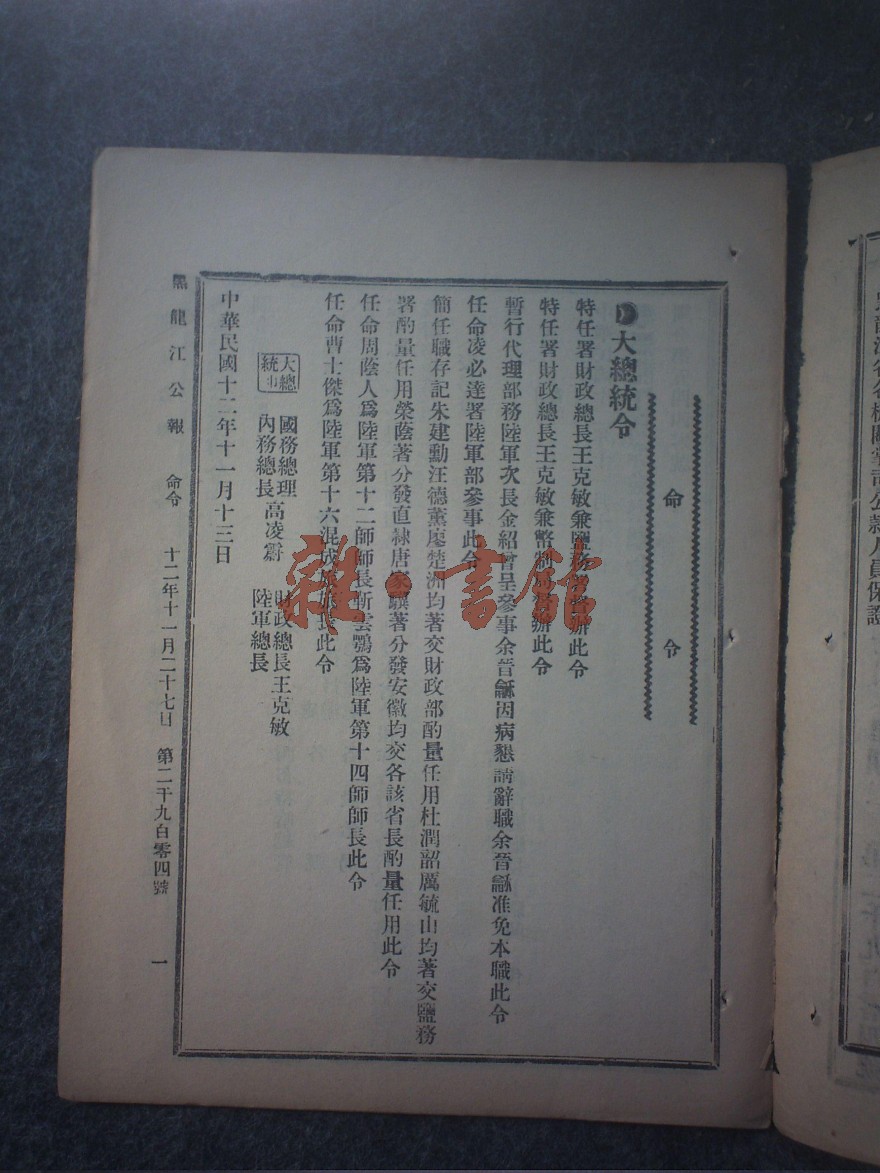 命令
大總統令
特任署財政總長王克敏兼鹽務署督辦此令
特任署財政總長王克敏兼幣制局督辦此令
暫行代理部務陸軍次長金紹曾呈參事余晉龢因病懇請辭職余晉龢准免本職此令
任命凌必達署陸軍部參事此令
簡任職存記朱建勳汪德薰廖楚洲均著交財政部酌量任用杜潤韶厲毓山均著交鹽務
署酌量任用榮蔭著分發直隸唐家驥著分發安徽均交各該省長酌量任用此令
任命周蔭人爲陸軍第十二師師長靳雲鶚爲陸軍第十四師師長此令
任命曹士傑爲陸軍第十六混成旅旅長此令
大總統印
國務總理
內務總長高凌霨
財政總長王克敏
陸軍總長
中華民國十二年十一月十三日
黑龍江公報 命令 十二年十一月二十七日 第二千九百零四號 一
雜·書館
公務人員保證